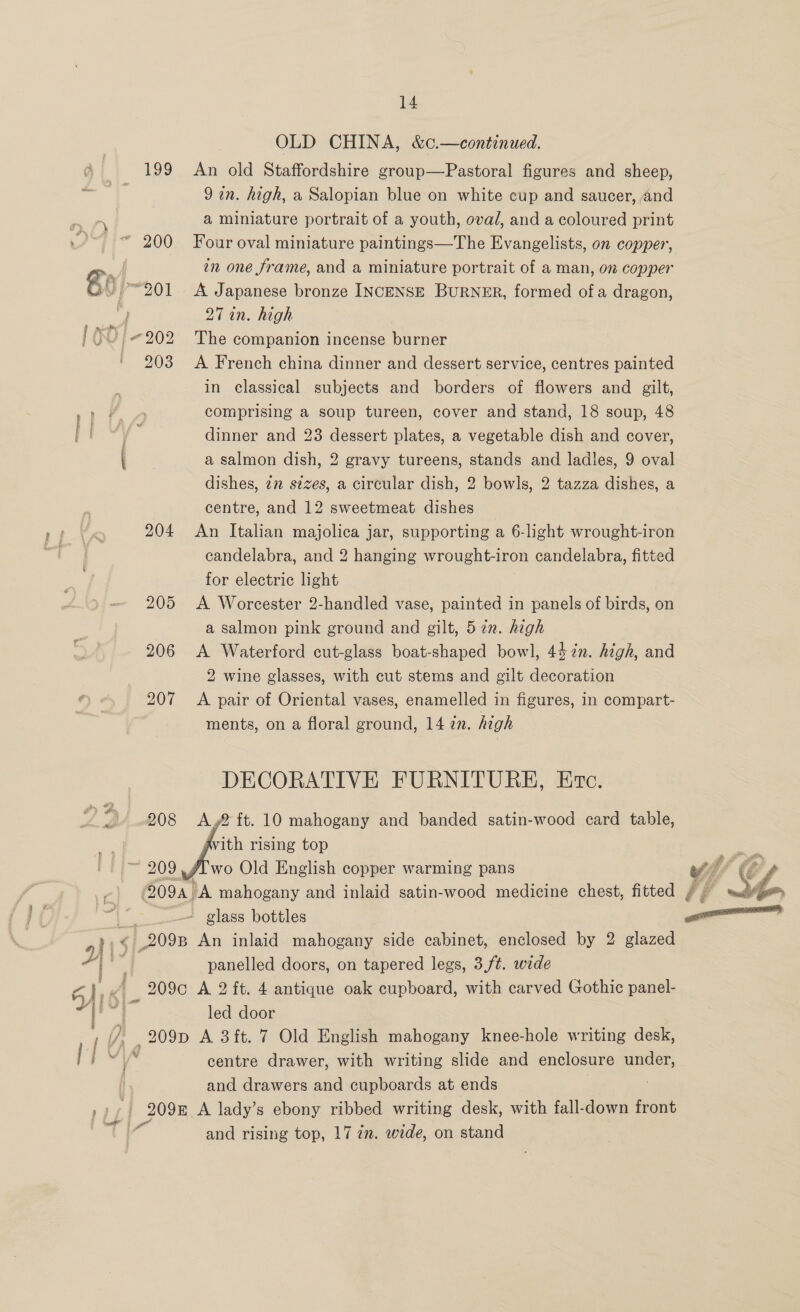 14
OLD CHINA, &c.—continued.
199 An old Staffordshire group—Pastoral figures and sheep,
9 in. high, a Salopian blue on white cup and saucer, and
a miniature portrait of a youth, oval, and a coloured print
200 Four oval miniature paintings—The Evangelists, on copper,
in one frame, and a miniature portrait of a man, on copper
201 A Japanese bronze INCENSE BURNER, formed of a dragon,
27 in. high
202 The companion incense burner
203 A French china dinner and dessert service, centres painted
in classical subjects and borders of flowers and gilt,
comprising a soup tureen, cover and stand, 18 soup, 48
dinner and 23 dessert plates, a vegetable dish and cover,
a salmon dish, 2 gravy tureens, stands and ladles, 9 oval
dishes, in sizes, a circular dish, 2 bowls, 2 tazza dishes, a
centre, and 12 sweetmeat dishes
204 An Italian majolica jar, supporting a 6-light wrought-iron
candelabra, and 2 hanging wrought-iron candelabra, fitted
for electric light
205 A Worcester 2-handled vase, painted in panels of birds, on
a salmon pink ground and gilt, 5 in. high
206 A Waterford cut-glass boat-shaped bowl, 4½ in. high, and
2 wine glasses, with cut stems and gilt decoration
207 A pair of Oriental vases, enamelled in figures, in compart-
ments, on a floral ground, 14 in. high
DECORATIVE FURNITURE, ETC.
208 A 2 ft. 10 mahogany and banded satin-wood card table,
with rising top
209 Two Old English copper warming pans
209A A mahogany and inlaid satin-wood medicine chest, fitted
glass bottles
209B An inlaid mahogany side cabinet, enclosed by 2 glazed
panelled doors, on tapered legs, 3 ft. wide
209C A 2 ft. 4 antique oak cupboard, with carved Gothic panel-
led door
209D A 3 ft. 7 Old English mahogany knee-hole writing desk,
centre drawer, with writing slide and enclosure under,
and drawers and cupboards at ends
209E A lady's ebony ribbed writing desk, with fall-down front
and rising top, 17 in. wide, on stand